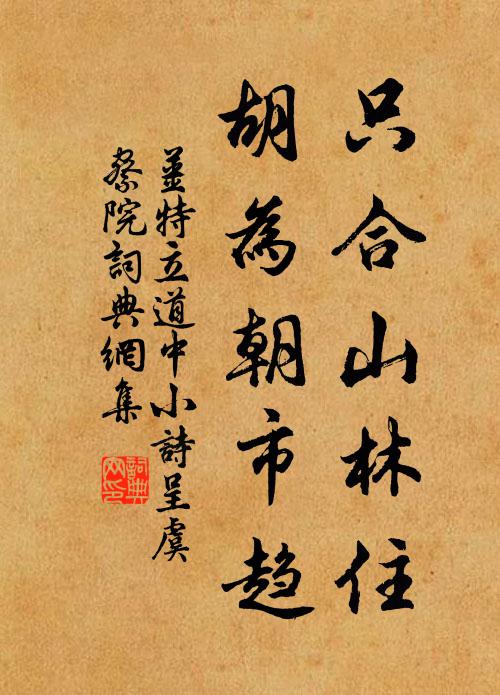 只合山林住
胡為朝市趋
姜特立道中小詩呈虞
察院詞典網集
詞典
网印